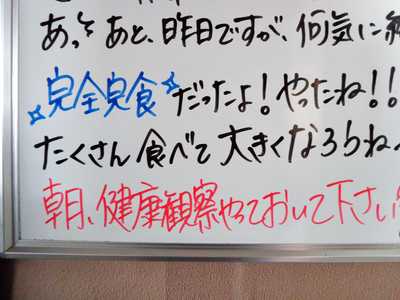 あっそ あと、昨日ですが、何気に
完全完食 だったよ！やったね！！
たくさん食べて大きくなろうね
朝、健康観察やっておいて下さい